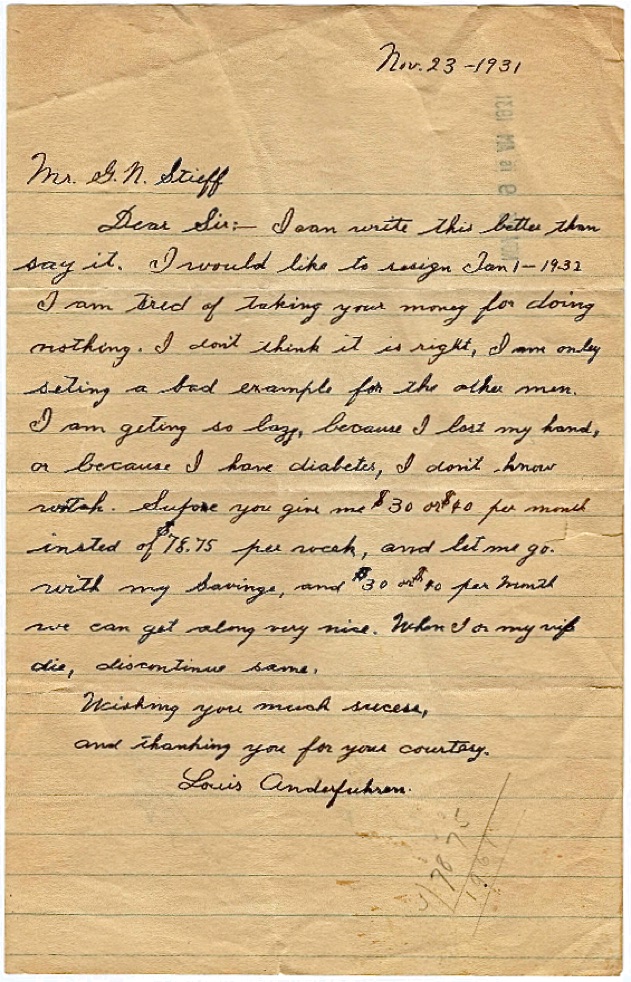 Nov. 23 - 1931
Mr. G. N. Stieff
Dear Sir:- I can write this better than
say it. I would like to resign Jan 1 - 1932
I am tired of taking your money for doing
nothing. I don't think it is right, I am only
seting a bad example for the other men.
I am geting so lazy, because I lost my hand,
or because I have diabetes, I don't know
witch. Supose you give me $30 or $40 per month
insted of $78.75 per week, and let me go.
with my Savings, and $30 or $40 per Month
we can get along very nice. When I or my wife
die, discontinue same.
Wishing you much sucess,
and thanking you for your courtesy.
Louis Anderfuhren.
78 75